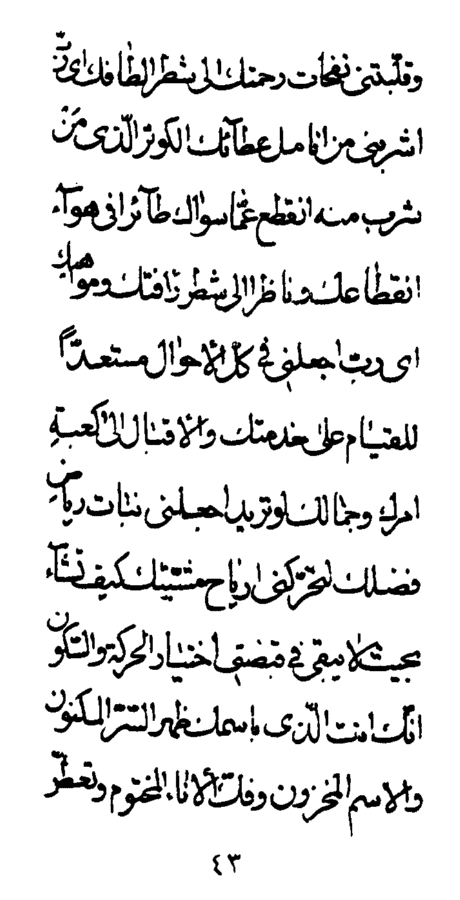 وقلّبتنی نفحات رحمتك الی شطر الطافك ای ربّ
اشربنی من انامل عطآئك الکوثر الّذی مَنْ
شرب منه انقطع عمّا سواك طآئراً فی هوآء
انقطاعك و ناظراً الی شطر رأفتك و مواهبك
ای ربّ اجعلنی فی کلّ الاحوال مستعدّاً
للقیام علی خدمتك و الاقبال الی کعبة
امرك و جمالك لو ترید اجعلنی نبات ریاض
فضلك لتحرّکنی اریاح مشیّتك کیف تشآء
بحیث لا یبقی فی قبضتی اختیار الحرکة والسّکون
انّك انت الّذی باسمك ظهر السّرّ المکنون
والاسم المخزون و فكّ الاناء المختوم و تعطّر
٤٣